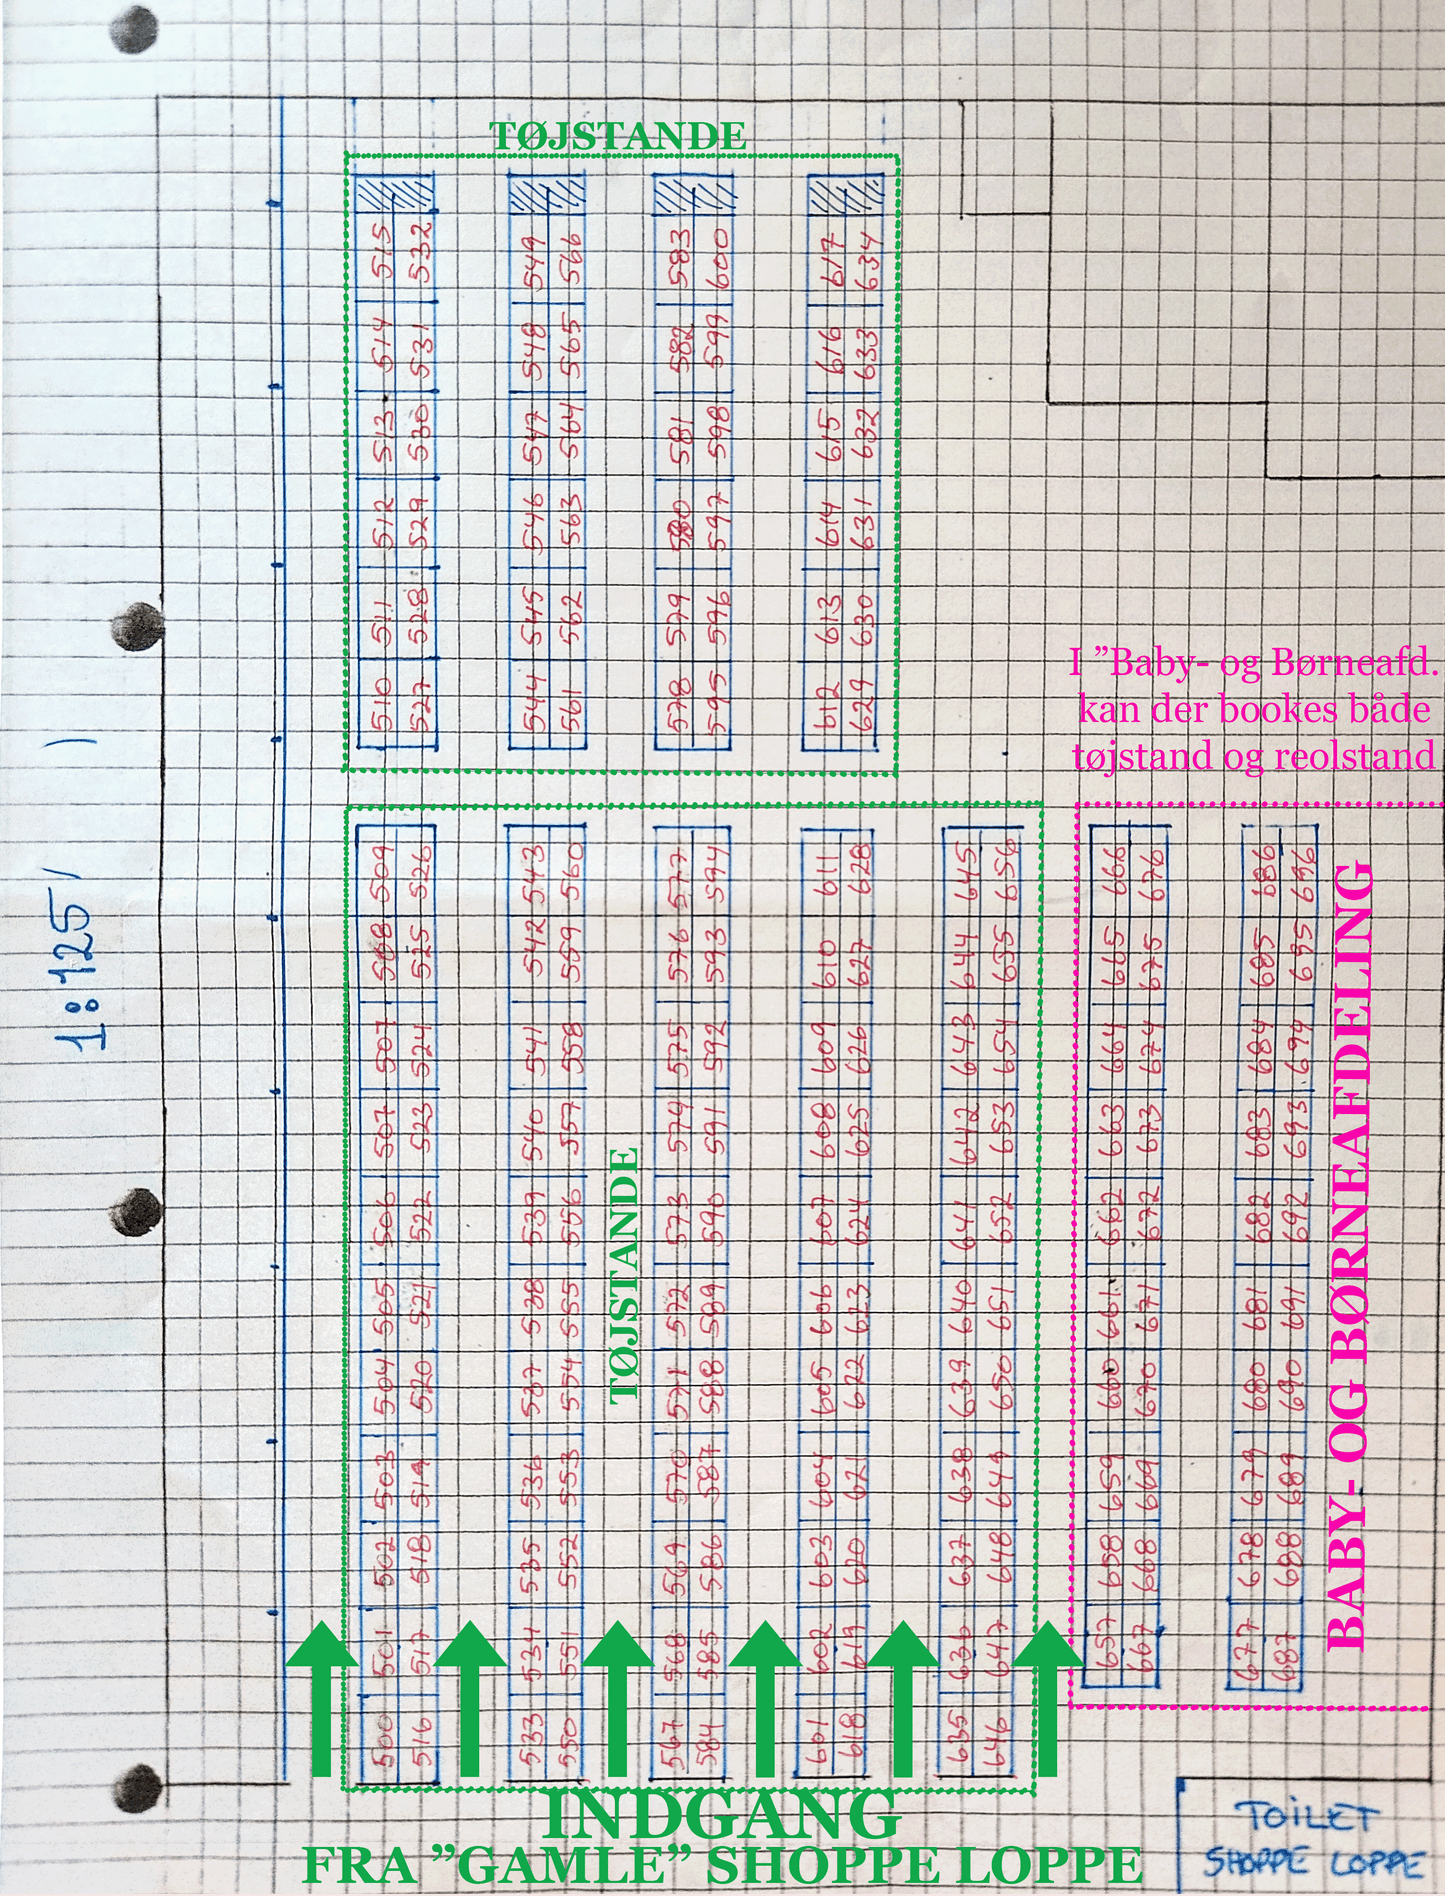 TØJSTANDE
510 511 512 513 514 515
527 528 529 530 531 532
544 545 546 547 548 549
561 562 563 564 565 566
578 579 580 581 582 583
595 596 597 598 599 600
612 613 614 615 616 617
629 630 631 632 633 634
I ”Baby- og Børneafd.
kan der bookes både
tøjstand og reolstand
1:125
500 501 502 503 504 505 506 507 507 508 509
516 517 518 519 520 521 522 523 524 525 526
533 534 535 536 537 538 539 540 541 542 543
550 551 552 553 554 555 556 557 558 559 560
TØJSTANDE
567 568 569 570 571 572 573 574 575 576 577
584 585 586 587 588 589 590 591 592 593 594
601 602 603 604 605 606 607 608 609 610 611
618 619 620 621 622 623 624 625 626 627 628
635 636 637 638 639 640 641 642 643 644 645
646 647 648 649 650 651 652 653 654 655 656
657 658 659 660 661 662 663 664 665 666
667 668 669 670 671 672 673 674 675 676
677 678 679 680 681 682 683 684 685 686
687 688 689 690 691 692 693 694 695 696
BABY- OG BØRNEAFDELING
INDGANG
FRA ”GAMLE” SHOPPE LOPPE
TOILET
SHOPPE LOPPE